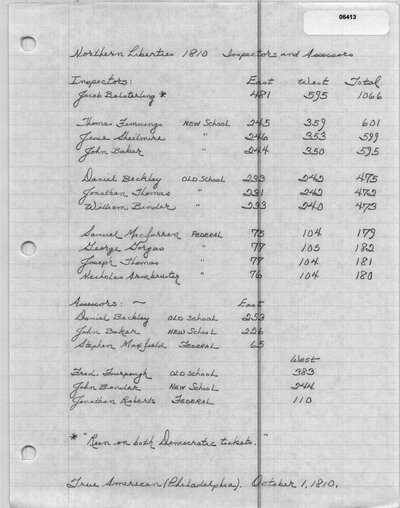 06413
Northern Liberties 1810 Inspectors and Assessors
Inspectors: East West Total
Jacob Belsterling * 481 595 1066
Thomas Timmings NEW School 245 359 601
Jesse Shelmire " 246 353 599
John Baker " 244 350 595
Daniel Beckley OLD School 233 242 475
Jonathan Thomas " 231 242 472
William Binder " 233 240 473
Samuel Macfarran FEDERAL 75 104 179
George Gorgas " 77 105 182
Joseph Thomas " 77 104 181
Nicholas Armbruster " 76 104 180
Assessors: ~ East
Daniel Beckley OLD School 253
John Baker NEW School 226
Stephen Maxfield FEDERAL 65
West
Fred. OLD School 383
John Bender NEW School 244
Jonathan Roberts FEDERAL 110
* "Run on both Democratic tickets."
True American (Philadelphia). October 1, 1810.